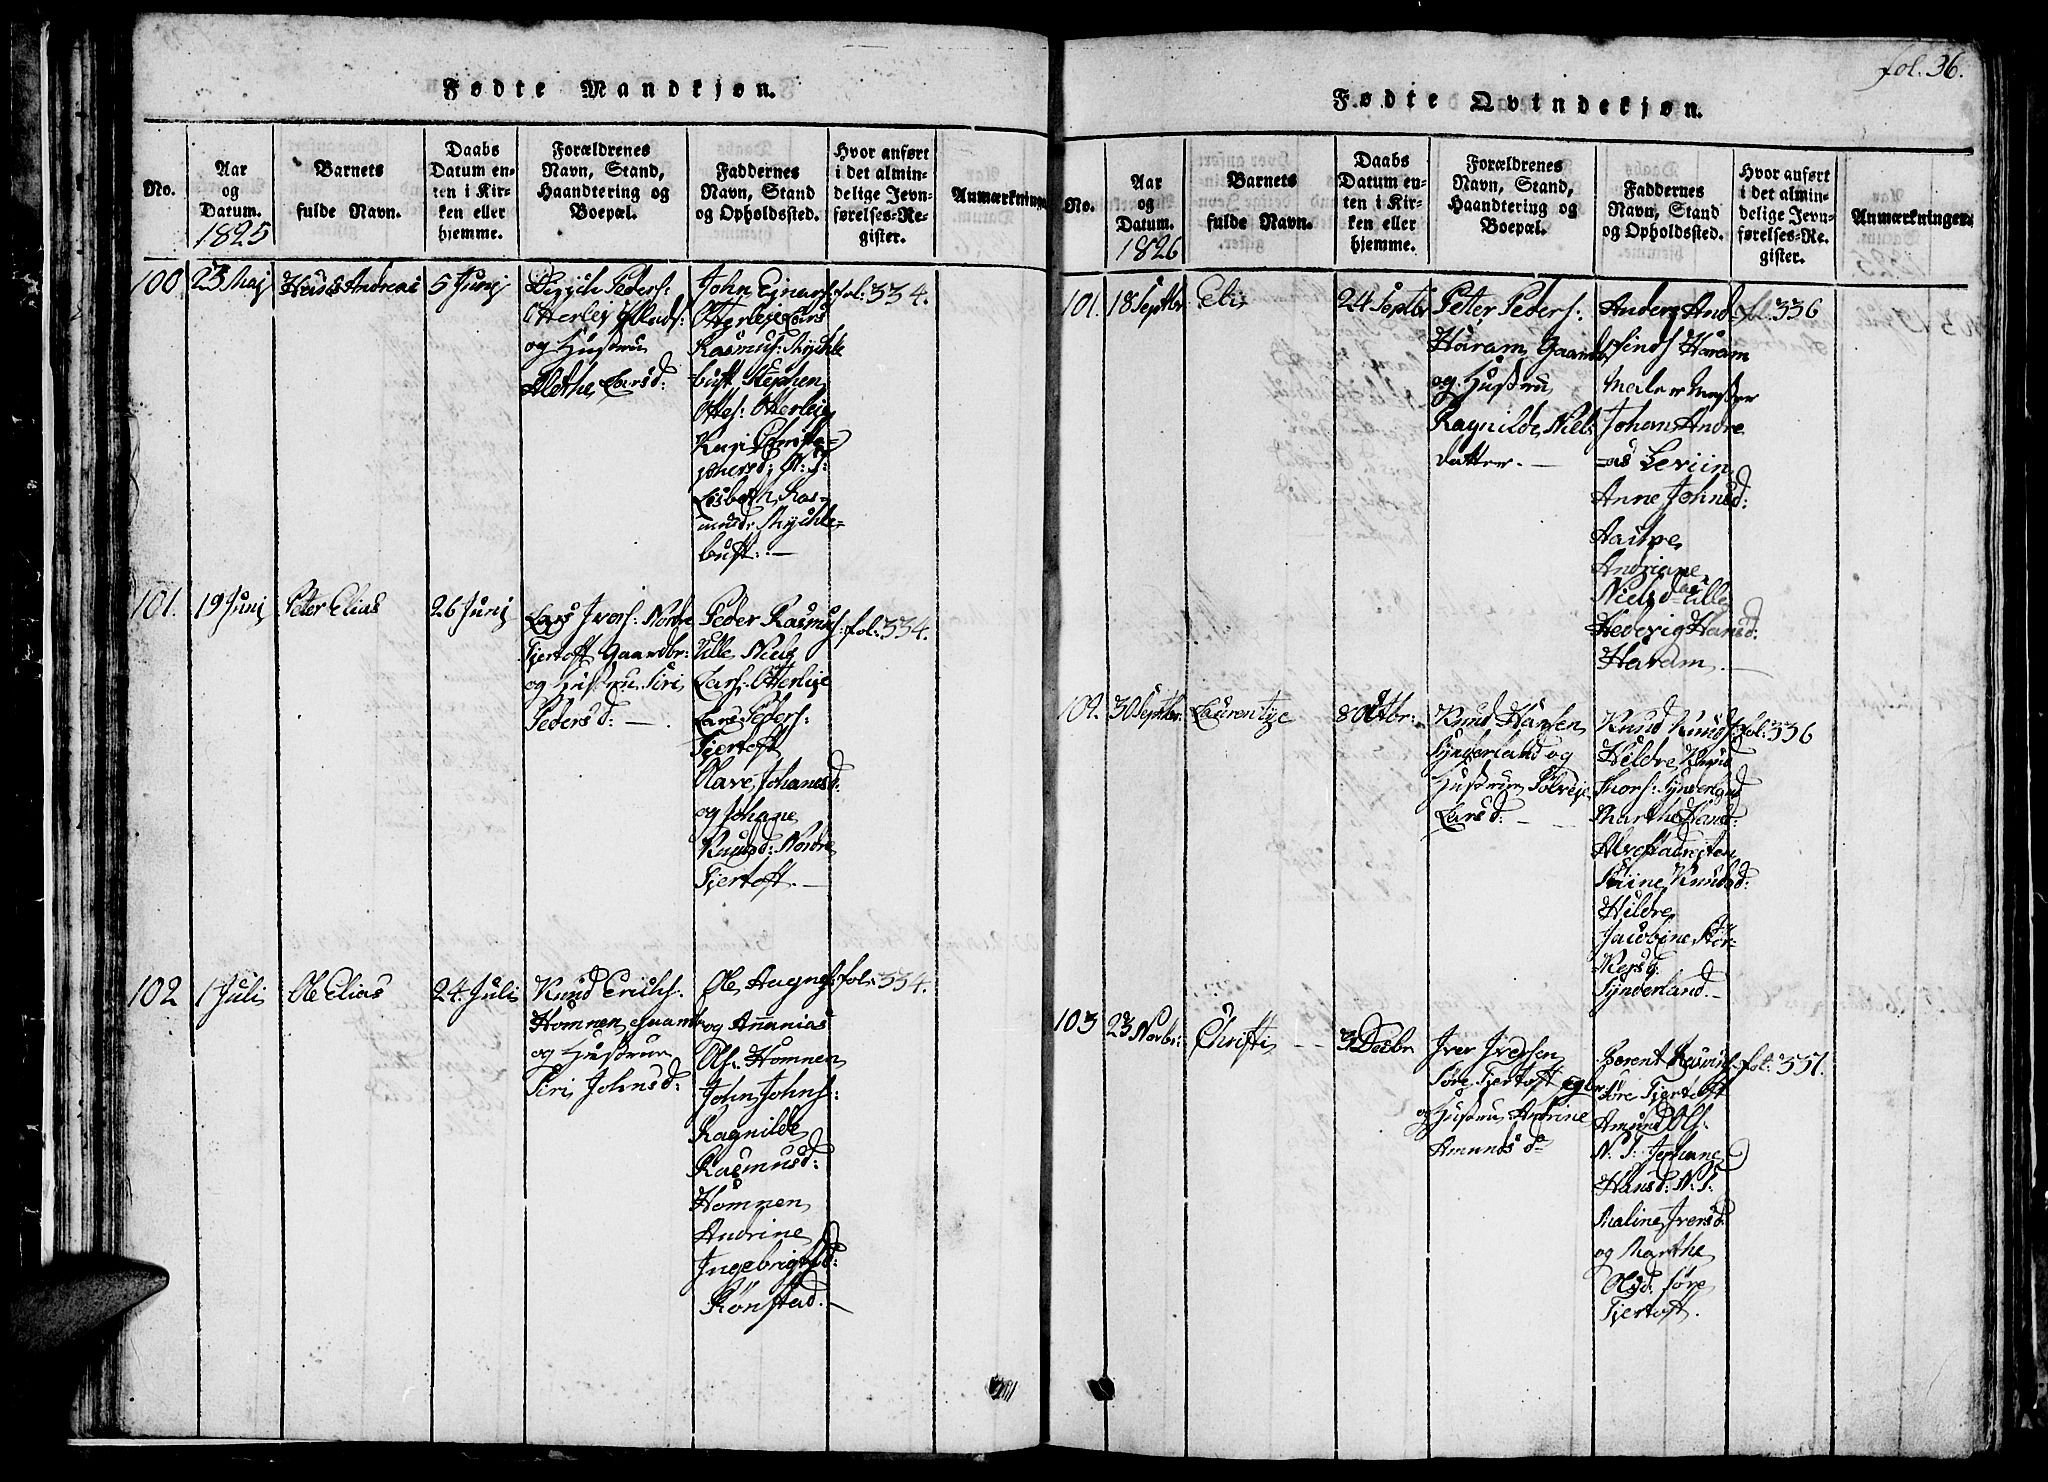 Fødte Mandkjøn.
No.
Aar
og
Datum.
1825
Barnets
fulde Navn.
Daabs
Datum en-
ten i Kir-
ken eller
hjemme.
Forældrenes
Navn, Stand,
Haandtering og
Boepæl.
Faddernes
Navn, Stand
og Opholdssted.
Hvor anført
i det almin-
delige Jevn-
førelses-Re-
gister.
Anmærkninge
100
23 Maj
Andreas
5 Junj
Peders:
Otterlej
og Hustru
Larsd:
John Ejnars:
Otterleje Lars
Rasmus: Myckle
bust Stephen
Ottes: Otterleij
Kari Christo-
phersd:
Lisbeth Ras-
musd: Myckle-
bust. —
fol: 334.
101.
19 Junj
Peter Elias
26 Junj
Lars Ivers: Nordre
Fjertoft Gaardbr:
og Hustru Siri
Pedersd: — .
Peder Rasmus:
Ulle Niels
Lars: Otterleje
Lars Peders:
Fjertoft
Olave Johanesd:
og Johane
Knudsd: Nordre
Fjertoft. —
fol: 334.
102
1 Juli
Ole Elias
24 Juli
Knud Erichs:
Homnen Gaardbr
og Hustrue
Siri Johnsd:
Ole Aagns:
og Ananias
Ols: Homnen
John Johns:
Ragnilde
Rasmusd:
Homnen
Andrine
Ingebrigtsd:
Rønstad. —
fol: 334.
fol. 36.
Fødte Qvindekjøn.
No.
Aar
og
Datum.
1826
Barnets
fulde Navn.
Daabs
Datum en-
ten i Kir-
ken eller
hjemme.
Forældrenes
Navn, Stand,
Haandtering og
Boepæl.
Faddernes
Navn, Stand
og Opholdssted.
Hvor anført
i det almin-
delige Jevn-
førelses-Re-
gister.
Anmærkninger
101.
18 Septbr
Eli
24 Septbr
Peter Peders:
Haram Gaardb
og Hustru
Ragnilde Niels
datter. —
Anders And
Haram
Maler Mester
Johan Andre
as Leviin
Anne Johnsd:
Andriane
Nielsd: Ulle
Hedevig Hansd:
Haram. —
fol: 336
102.
30 Septbr.
Laurentze
8 Octbr:
Knud Hansen
Synderland og
Hustrue Solveje
Larsd: —
Knud Knuds
Hildre Knud
Thors: Synderland
Marthe Hansd:
Alvestadrejten
Stiine Knudsd:
Hildre
Jacobine Stor-
Kersd:
Synderland. —
fol: 336
103
23 Novbr:
Christi
3 Decbr
Iver Iversen
Søre Fjertoft
og Hustru Andrine
Amundsd
Berent Rasmus
Søre Fjertoft
Amund Ols:
N. F: Johane
Hansd: N. F:
Maline Iversd
og Marthe
Olsd: Søre
Fjertoft.
fol: 337.